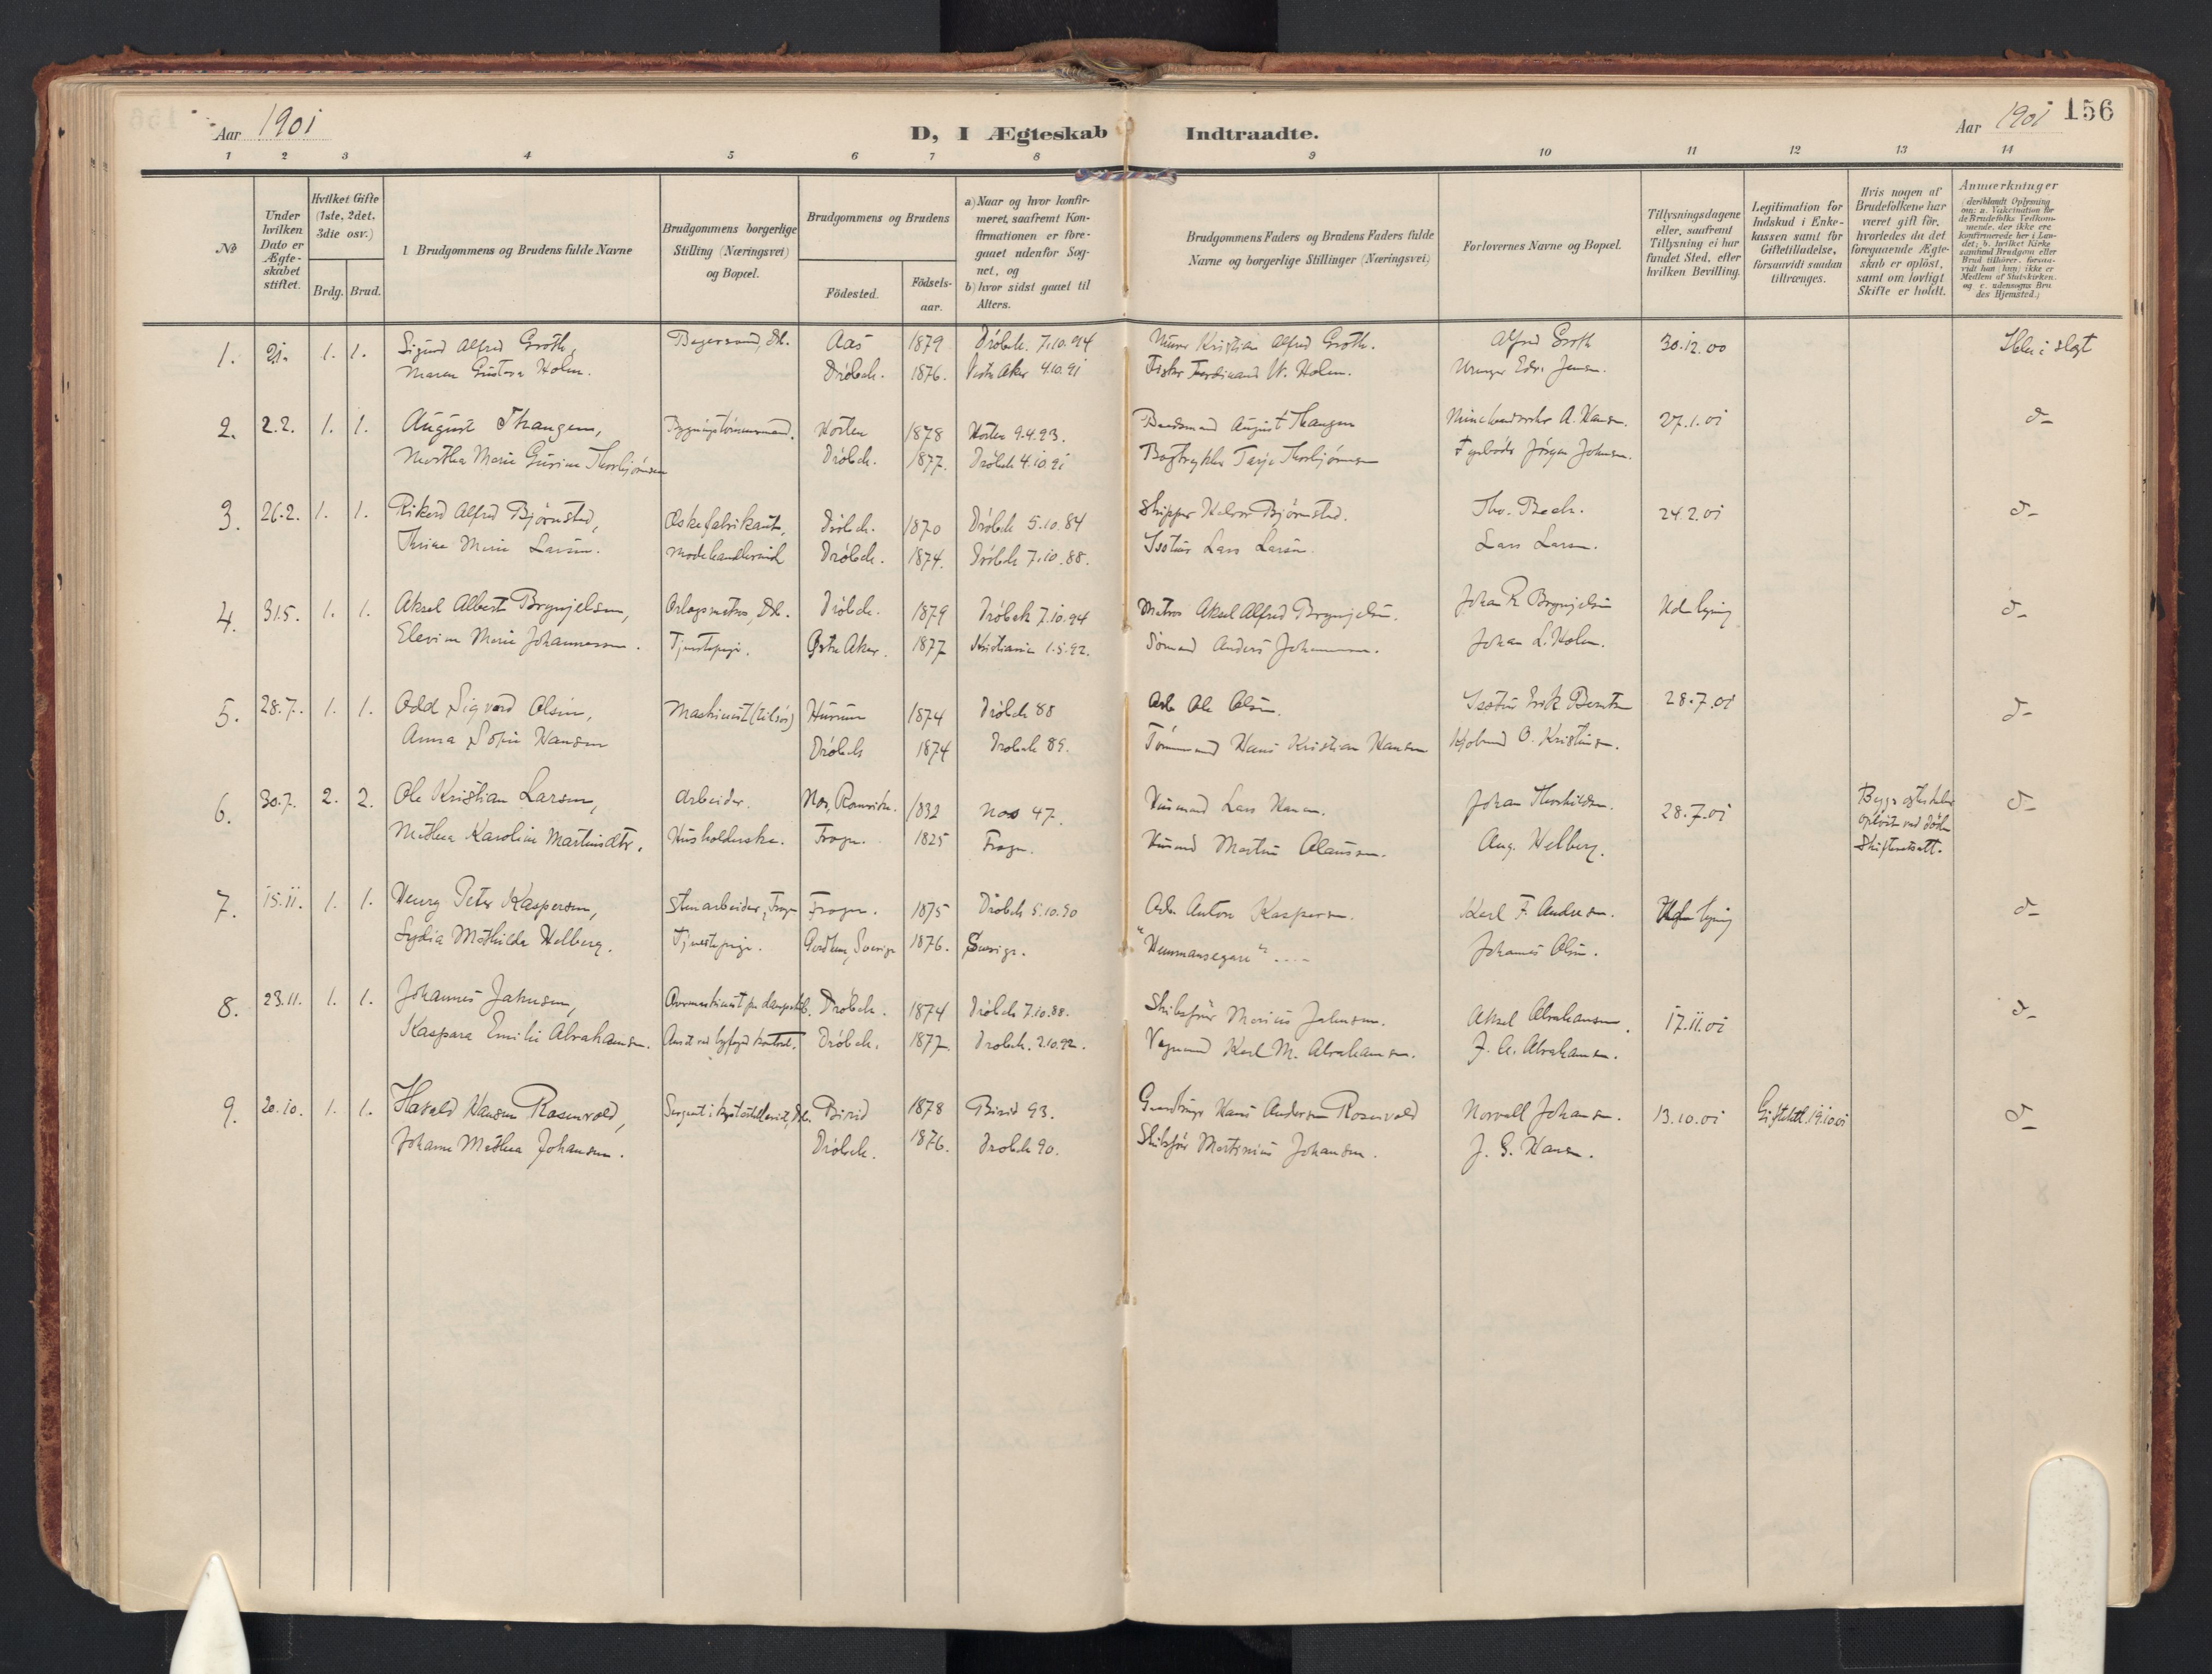 156
Aar 1901
D, I Ægteskab Indtraadte.
Aar 1901
1 2 3 4 5 6 7 8 9 10 11 12 13 14
№
Under hvilken Dato er Ægteskabet stiftet.
Hvilket Gifte (1ste, 2det, 3die osv.)
Brdg. Brud.
1. Brudgommens og Brudens fulde Navne
Brudgommens borgerlige Stilling (Næringsvei) og Bopæl.
Brudgommens og Brudens
Födested.
Födselsaar.
a) Naar og hvor konfirmeret, saafremt Konfirmationen er foregaaet udenfor Sognet, og
b) hvor sidst gaaet til Alters.
Brudgommens Faders og Brudens Faders fulde Navne og borgerlige Stillinger (Næringsvei)
Forlovernes Navne og Bopæl.
Tillysningsdagene eller, saafremt Tillysning ei har fundet Sted, efter hvilken Bevilling.
Legitimation for Indskud i Enkekassen samt for Giftetilladelse, forsaavidt saadan tiltrænges.
Hvis nogen af Brudefolkene har været gift för, hvorledes da det foregaaende Ægteskab er oplöst, samt om lovligt Skifte er holdt.
Anmærkninger (deriblandt Oplysning om: a. Vakcination for de Brudefolks Vedkommende, der ikke ere konfirmerede her i Landet; b. hvilket Kirkesamfund Brudgom eller Brud tilhörer, forsaavidt han (hun) ikke er Medlem af Statskirken, og c. udensogns Brudes Hjemsted.)
1. 1. 1. Sigurd Alfred Groth, Aas 1879 Dröbak. 7.10.94 Kristian Alfred Groth. Alfred Groth 30.12.00 Ikke i slegt
Maren Gustava Holm. Dröbak. 1876. Vestre Aker 4.10.91 Fisker Ferdinand W. Holm. Edv. Jensen.
2. 2.2. 1. 1. August Thangen, Holten 1878 Holten 9.4.93. August Thangen A. Hansen. 27.1.01 do
Marthea Marie Gurine Thorbjörnsen Dröbak. 1877. Dröbak 4.10.91 Bogtrykker Tarje Thorbjörnsen Fyrböder Jörgen Johnsen.
3. 26.2. 1. 1. Rikard Alfred Bjørnstad, Æskefabrikant, Dröbak. 1870 Dröbak 5.10.84 Skipper Halvor Bjørnstad. Tho. Bech. 24.2.01 do
Thrine Marie Larsen. Modehandlerinde Dröbak. 1874. Dröbak 7.10.88. Lars Larsen. Lars Larsen.
4. 31.5. 1. 1. Aksel Albert Brynjelsen, Orlogsmatros, Db. Dröbak. 1879 Dröbak 7.10.94 Matros Aksel Alfred Brynjelsen. Johan R. Brynjelsen Uden lysning do
Elevine Marie Johannessen. Tjenestepige. Østre Aker. 1877 Kristiania 1.5.92. Sömand Anders Johannessen. Johan L. Holm.
5. 28.7. 1. 1. Odd Sigvard Olsen, Maskinist (tilsös) Hurum 1874 Dröbak 88 Arb. Ole Olsen. Erik Berntsen 28.7.01 do
Anna Sofie Hansen Dröbak 1874 Dröbak 89. Tömmermand Hans Kristian Hansen O. Kristensen.
6. 30.7. 2. 2. Ole Kristian Larsen, Arbeider. Nes, Romerike. 1832 Nes 47. Husmand Lars Hansen. Johan Thorkildsen. 28.7.01 Begge egteskaber oplöst ved död. do
Mathea Karoline Martinsdtr. Husholderske. Frogn. 1825 Frogn. Husmand Martin Olausen. Aug. Helberg.
7. 15.11. 1. 1. Henry Peter Kaspersen, Stenarbeider, Frogn Frogn. 1875 Dröbak 5.10.90 Arb. Anton Kaspersen. Karl F. Andersen. Uden lysning do
Lydia Mathilde Helberg. Tjenestepige. Sverige 1876. Sverige. "Hemmansegare" .... Johannes Olsen.
8. 23.11. 1. 1. Johannes Jahnsen, Dröbak. 1874 Dröbak 7.10.88. Skibsförer Marius Jahnsen. Aksel Abrahamsen. 17.11.01 do
Kaspara Emilie Abrahamsen. Dröbak. 1877. Dröbak. 2.10.92. Karl M. Abrahamsen. J. A. Abrahamsen.
9. 20.10. 1. 1. Harald Hansen Rosenvold, Birid 1878 Birid 93. Hans Andersen Rosenvold Norvall Johansen. 13.10.01 19.10.01 do
Johanne Mathea Johansen. Dröbak. 1876. Dröbak 90. Skibsförer Martinius Johansen. J. G. Hansen.